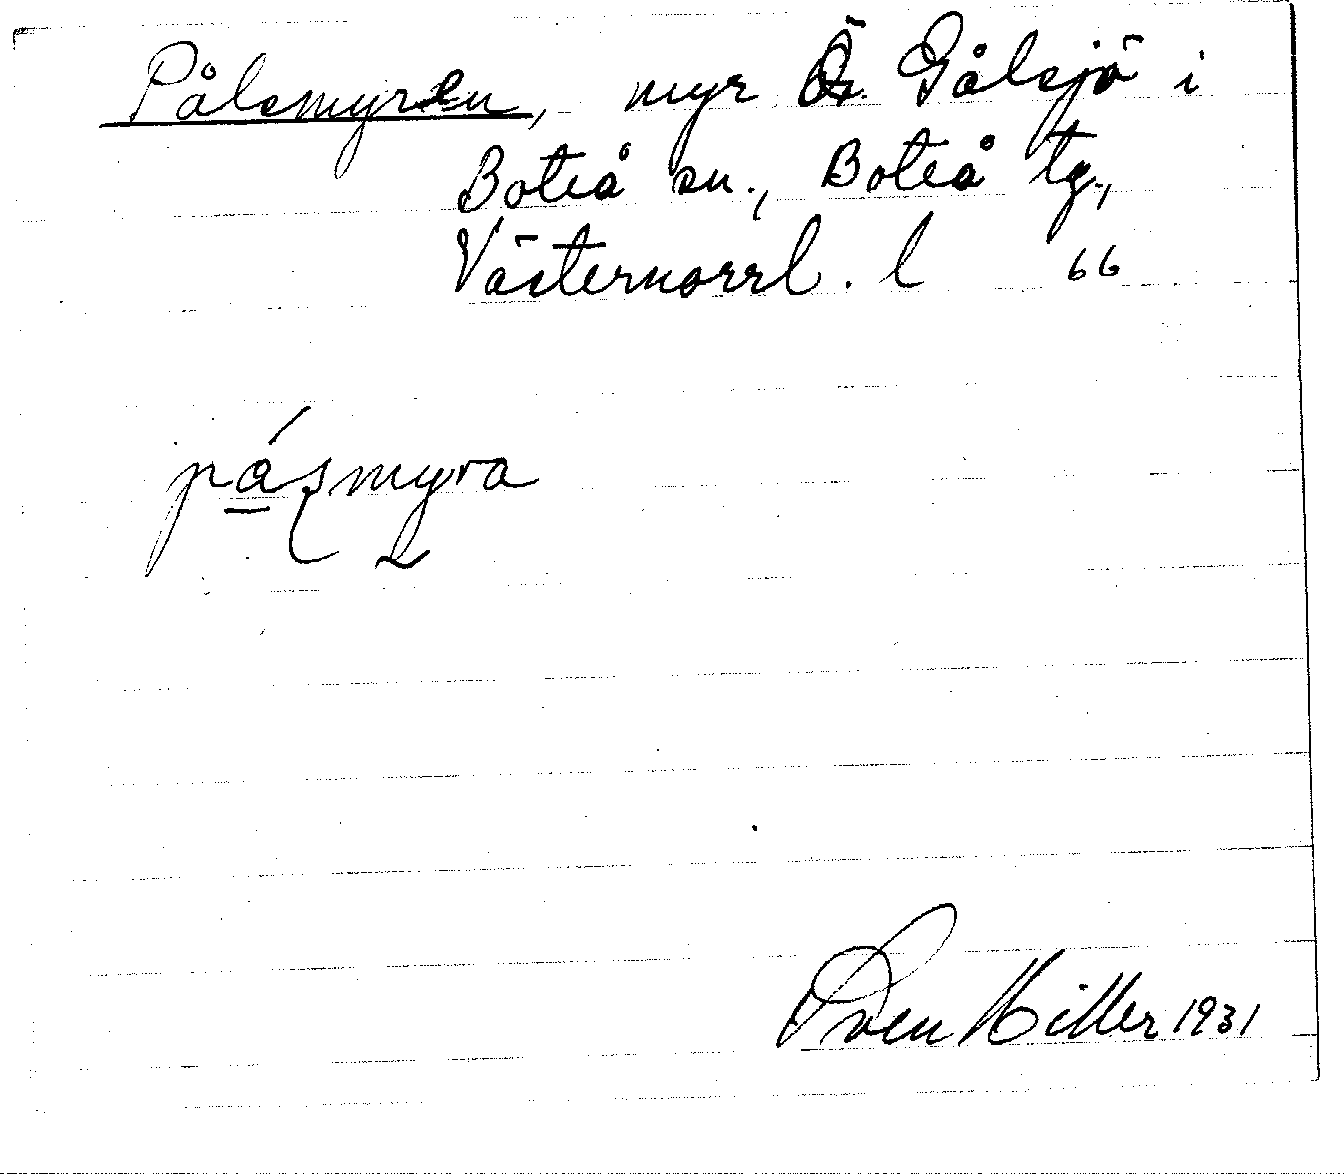 Pålsmyren, myr Ö. Gålsjö i
Boteå sn., Boteå tg.,
Västernorrl. l 66
Sven Hiller 1931